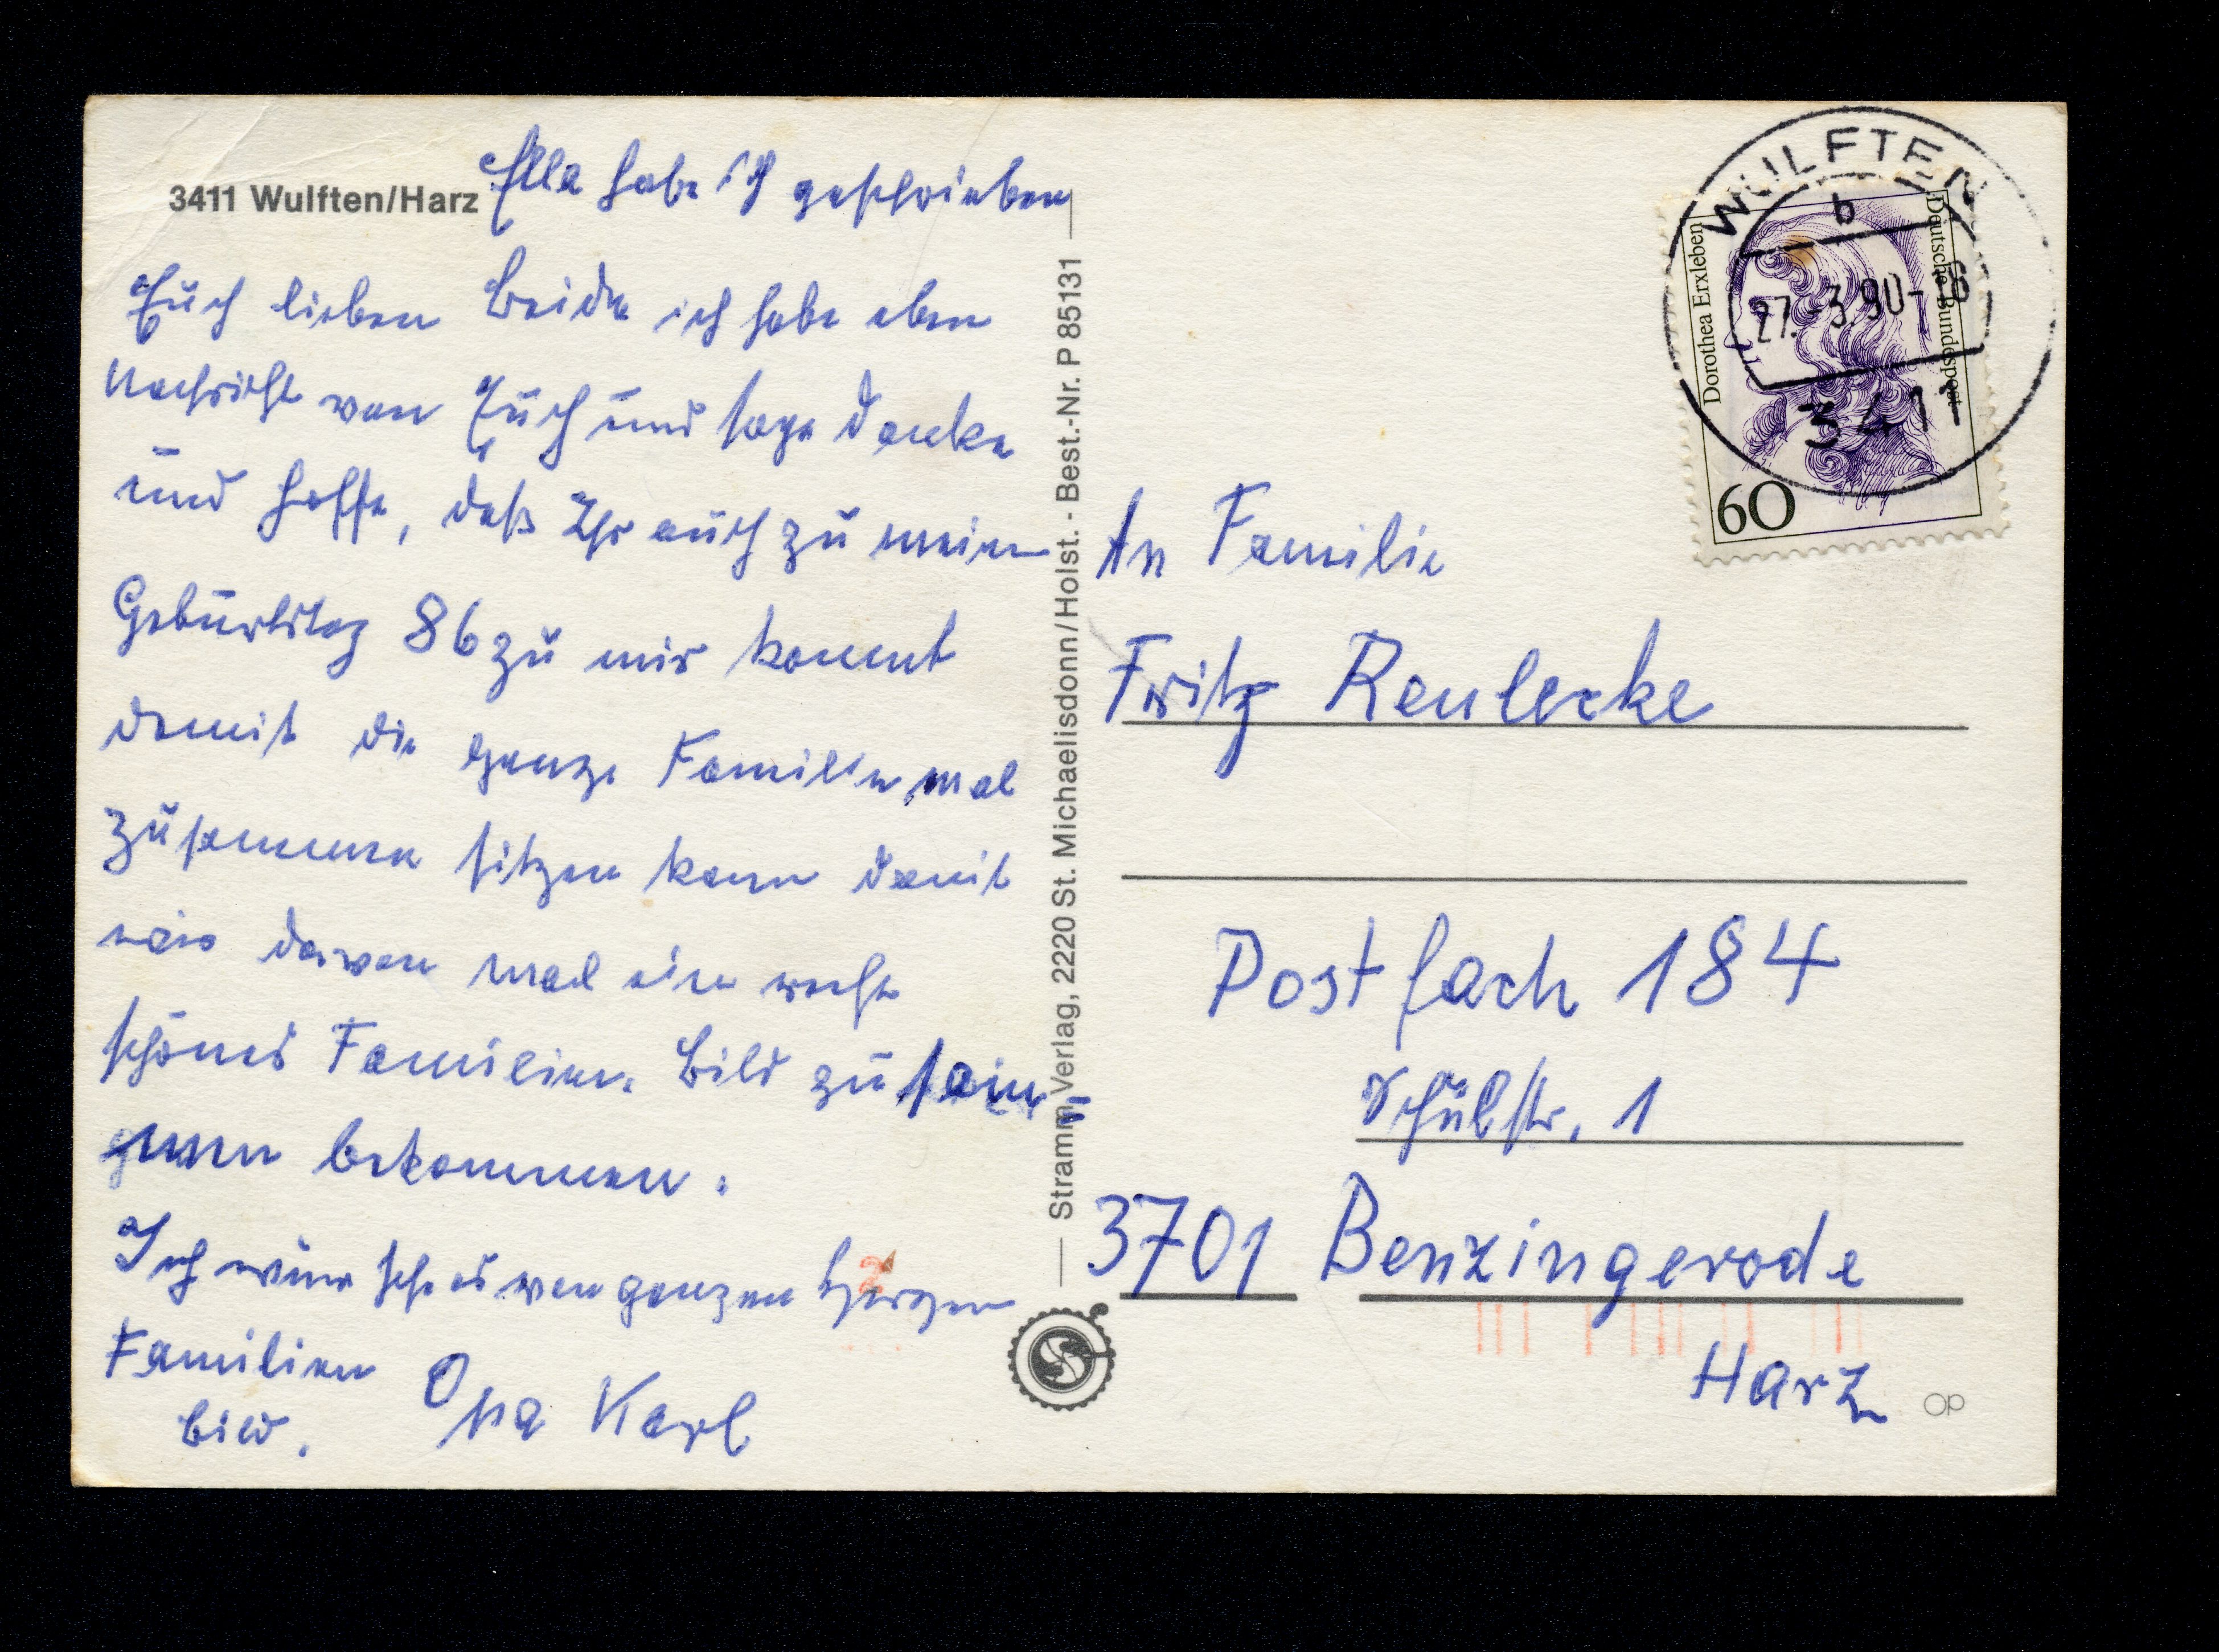 3411 Wulften/Harz
Ella habe ich geschrieben
Euch lieben Beide ich habe eben
Nachricht von Euch und sage danke
und hoffe, daß Ihr auch zu meinen
Geburtstag 86 zu mir kommt
damit die ganze Familie mal
zusammen sitzen kann damit
wir davon mal ein recht
schönes Familien Bild zu
bekommen.
Ich wünsche es von ganzen Herzen
Familien
Bild.
Opa Karl
Stramm Verlag, 2220 St. Michaelisdonn/Holst. - Best.-Nr. P 85131
WULFTEN
b
27.-3.90-
341
Dorothea Erxleben
Deutsche Bundespost
60
An Familie
Fritz Reulecke
Postfach 184
Schulstr. 1
3701 Benzingerode
Harz